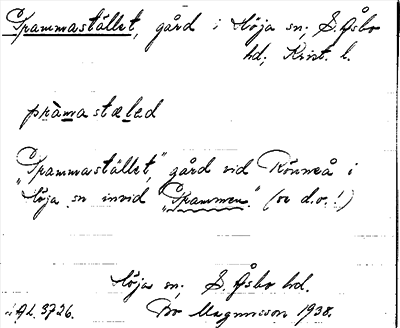 Prammastället, gård i Höja sn; S. Åsbo
hd; Krist. l.
pràmastæled
"Prammastället", gård vid Rönneå i
Höja sn invid "Prammen". (se d.o.!)
Höja sn; S. Åsbo hd.
AL. 3726. Bo Magnusson 1938.